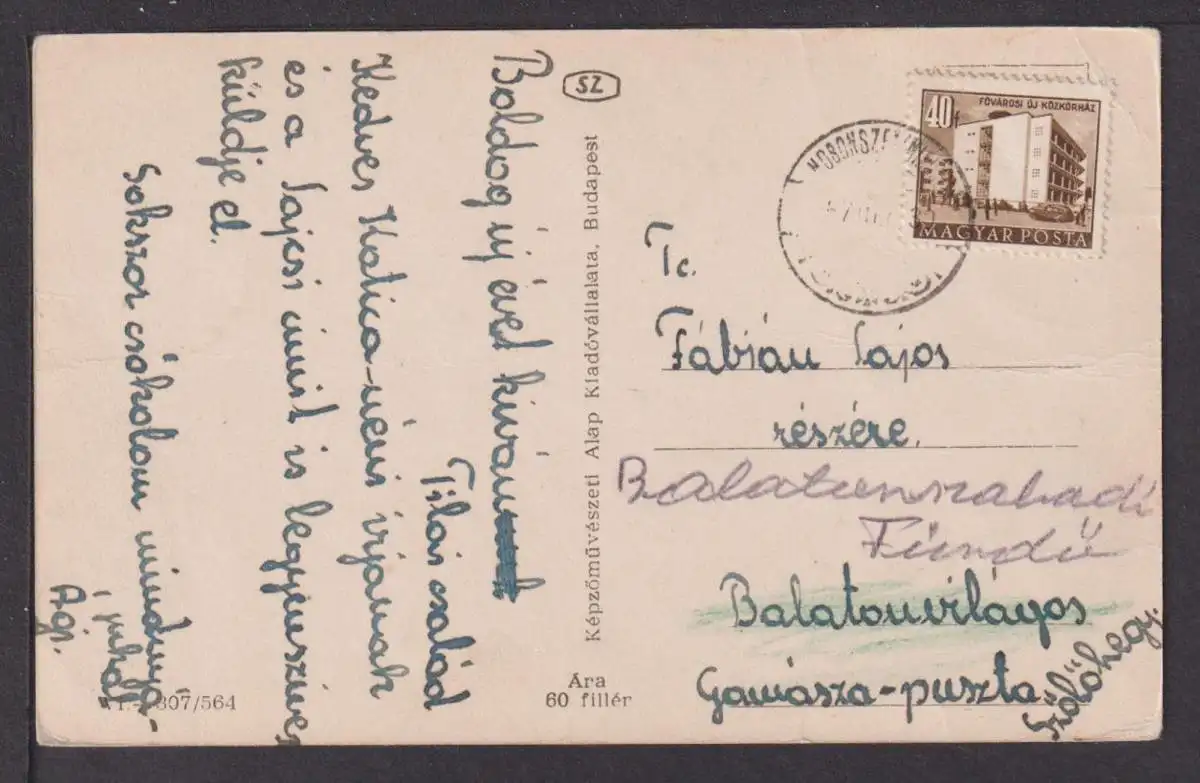 Boldog új évet kiván
Tilai család
Kedves Katica-néni irjanak
és a Lajcsi amit is legyen szíves
küldje el.
Sokszor csókolom mindnyá-
jukat
Ági.
SZ
Képzőművészeti Alap Kiadóvállalata, Budapest
Ára
60 fillér
307/564
40f
FŐVÁROSI ÚJ KÖZKÓRHÁZ
MAGYAR POSTA
Tc.
Fábián Lajos
részére.
Balatonszabadi
Fürdő
Balatonvilágos
Gamásza-puszta
Szőlőhegy.